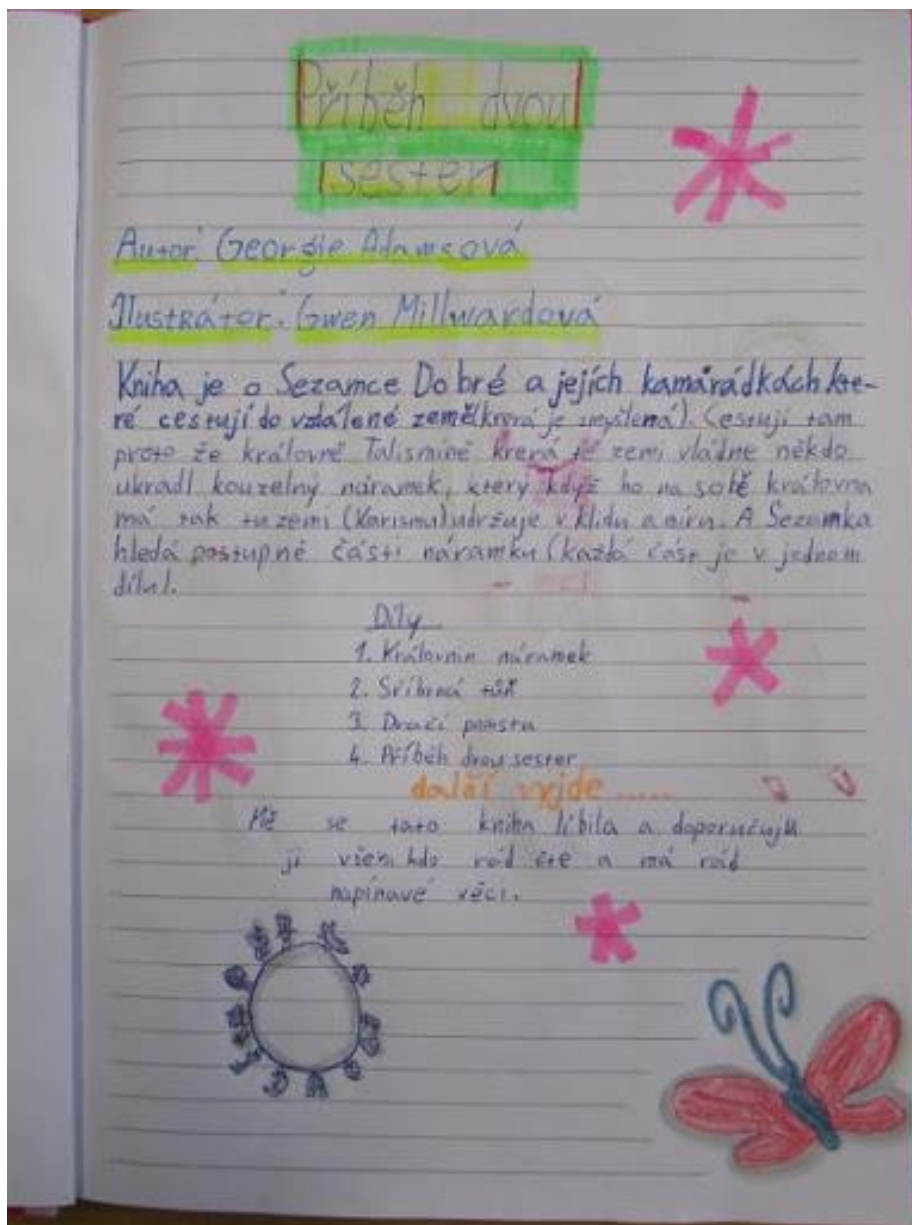 Příběh dvou
sester
Autor: Georgie Adamsová
Ilustrátor: Gwen Millwardová
Kniha je o Sezamce Dobré a jejích kamarádkách kte-
ré cestují do vzdálené země (krerá je smyšlená). Cestují tam
proto že královně Talismině krerá té zemi vládne někdo
ukradl kouzelný náramek, který když ho na sobě královna
má tak tu zemi (Karismu) udržuje v klidu a míru. A Sezamka
hledá postupně části náramku (každá část je v jednom
dílu).
Díly
1. Královnin náramek
2. Stříbrná tůň
3. Dračí pomsta
4. Příběh dvou sester
další vyjde .....
Mě se tato kniha líbila a doporučuju
ji všem kdo rád čte a má rád
napínavé věci.